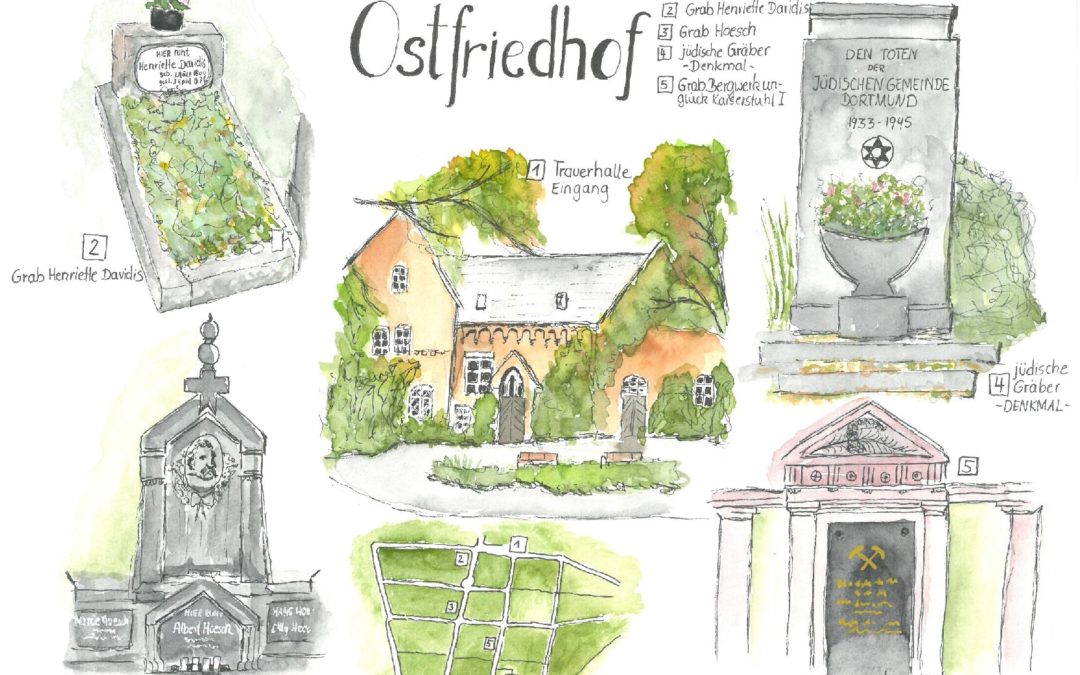 Ostfriedhof
2 Grab Henriette Davidis
3 Grab Hoesch
4 jüdische Gräber
-Denkmal-
5 Grab Bergwerkun-
glück Kaiserstuhl I
HIER RUHT
Henriette Davidis
2
Grab Henriette Davidis
1 Trauerhalle
Eingang
DEN TOTEN
DER
JÜDISCHEN GEMEINDE
DORTMUND
1933-1945
4 jüdische
Gräber
-DENKMAL-
HIER RUHT
Albert Hoesch
1
2
3
5
5